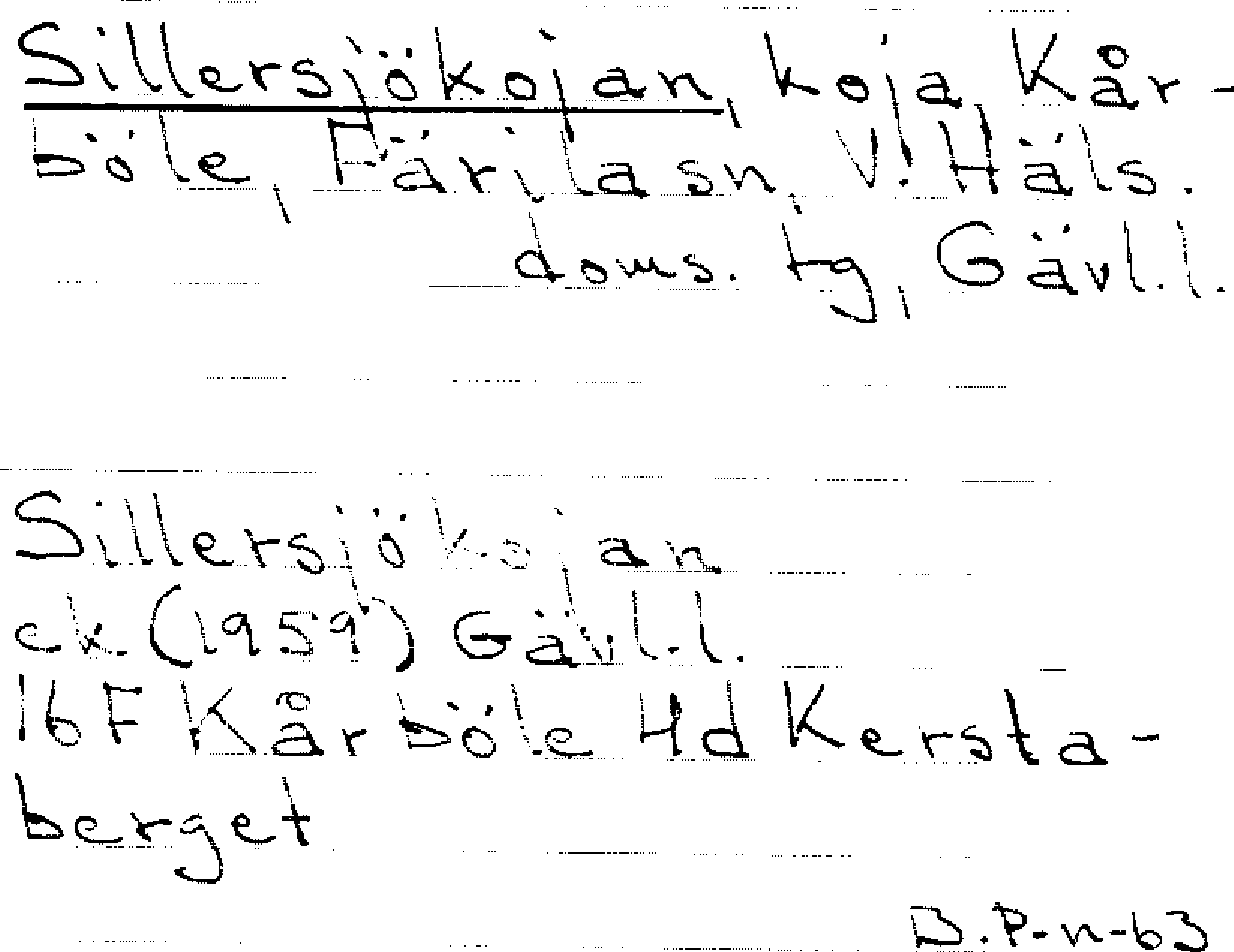 Sillersjökojan, koja, Kår-
böle, Färila sn, V. Häls.
doms. tg, Gävl.l.
Sillersjökojan
ek. (1959) Gävl.l.
16F Kårböle 4d Kersta-
berget
B.P-n-63